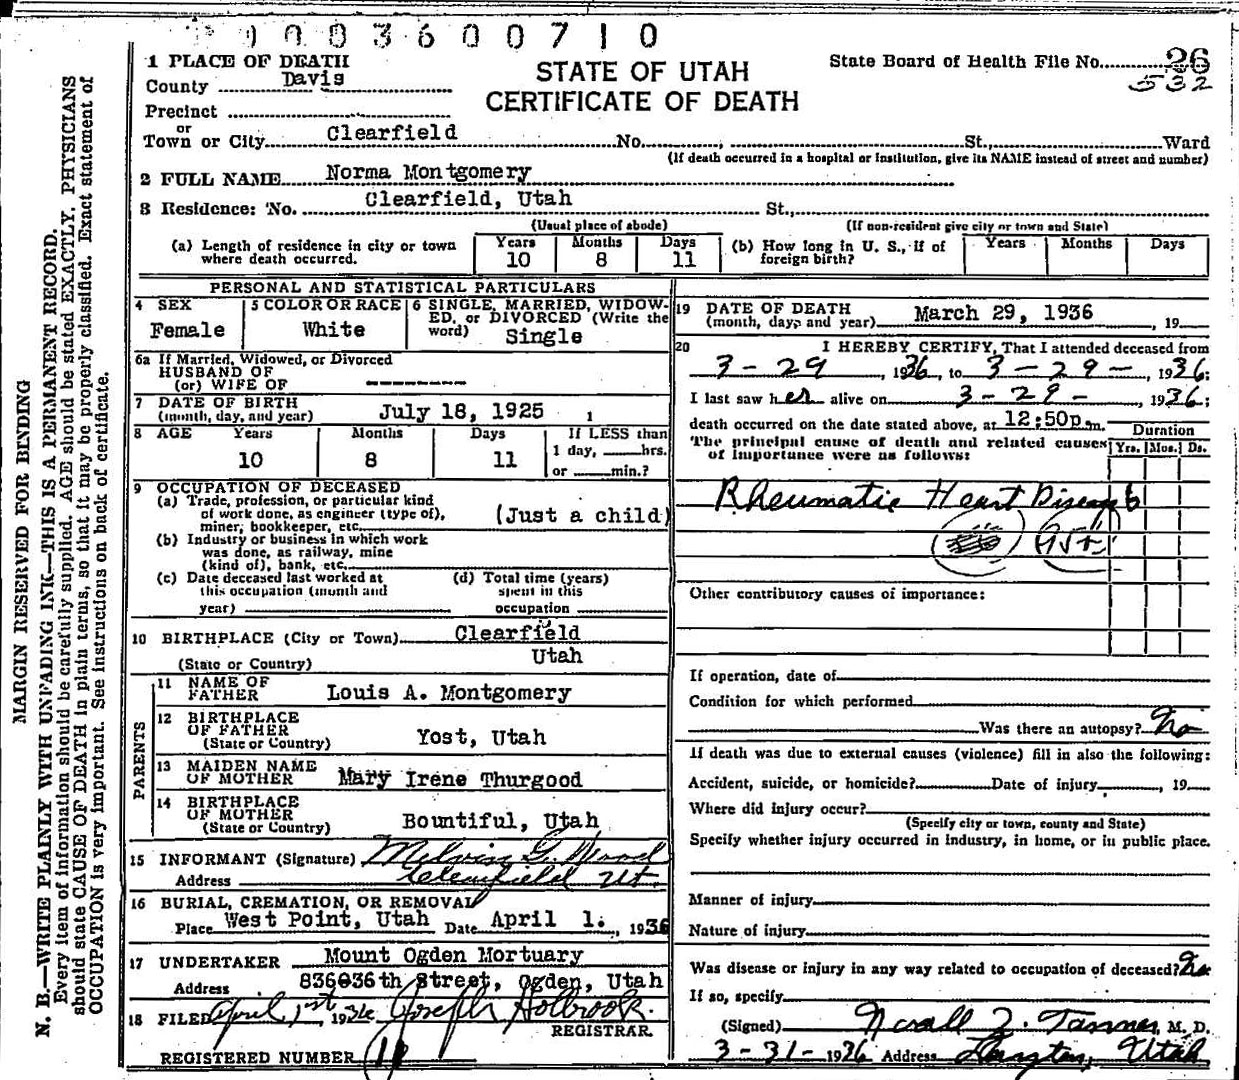 0003600710
1 PLACE OF DEATH
County Davis
Precinct
or
Town or City Clearfield No. St., Ward
STATE OF UTAH
CERTIFICATE OF DEATH
State Board of Health File No. 26
532
(If death occurred in a hospital or institution, give its NAME instead of street and number)
2 FULL NAME Norma Montgomery
3 Residence: No. Clearfield, Utah St.,
(Usual place of abode) (If non-resident give city or town and State)
(a) Length of residence in city or town where death occurred. Years 10 Months 8 Days 11
(b) How long in U. S., if of foreign birth? Years Months Days
PERSONAL AND STATISTICAL PARTICULARS
4 SEX Female
5 COLOR OR RACE White
6 SINGLE, MARRIED, WIDOW-
ED, or DIVORCED (Write the
word) Single
6a If Married, Widowed, or Divorced
HUSBAND OF
(or) WIFE OF --------
7 DATE OF BIRTH
(month, day, and year) July 18, 1925 1
8 AGE Years 10 Months 8 Days 11
If LESS than
1 day, hrs.
or min.?
9 OCCUPATION OF DECEASED
(a) Trade, profession, or particular kind
of work done, as engineer (type of),
miner, bookkeeper, etc. (Just a child)
(b) Industry or business in which work
was done, as railway, mine
(kind of), bank, etc.
(c) Date deceased last worked at
this occupation (month and
year)
(d) Total time (years)
spent in this
occupation
10 BIRTHPLACE (City or Town) Clearfield
(State or Country) Utah
PARENTS
11 NAME OF
FATHER Louis A. Montgomery
12 BIRTHPLACE
OF FATHER
(State or Country) Yost, Utah
13 MAIDEN NAME
OF MOTHER Mary Irene Thurgood
14 BIRTHPLACE
OF MOTHER
(State or Country) Bountiful, Utah
15 INFORMANT (Signature) Melvin G. Wood
Address Clearfield Ut.
16 BURIAL, CREMATION, OR REMOVAL
Place West Point, Utah Date April 1. , 1936
17 UNDERTAKER Mount Ogden Mortuary
Address 836 36th Street, Ogden, Utah
18 FILED April 1st, 1936 Joseph Holbrook.
REGISTRAR.
REGISTERED NUMBER
19 DATE OF DEATH
(month, day, and year) March 29, 1936 , 19
20 I HEREBY CERTIFY, That I attended deceased from
3-29 , 1936, to 3-29- , 1936;
I last saw her alive on 3-29- , 1936;
death occurred on the date stated above, at 12:50p.m.
The principal cause of death and related causes
of importance were as follows:
Duration
Yrs. Mos. Ds.
Rheumatic Heart Disease 6
Other contributory causes of importance:
If operation, date of
Condition for which performed
Was there an autopsy? No
If death was due to external causes (violence) fill in also the following:
Accident, suicide, or homicide? Date of injury , 19
Where did injury occur?
(Specify city or town, county and State)
Specify whether injury occurred in industry, in home, or in public place.
Manner of injury
Nature of injury
Was disease or injury in any way related to occupation of deceased? No
If so, specify
(Signed) Noall Z. Tanner, M. D.
3-31-1936 Address Layton, Utah
MARGIN RESERVED FOR BINDING
N. B.—WRITE PLAINLY WITH UNFADING INK—THIS IS A PERMANENT RECORD.
Every item of information should be carefully supplied. AGE should be stated EXACTLY. PHYSICIANS
should state CAUSE OF DEATH in plain terms, so that it may be properly classified. Exact statement of
OCCUPATION is very important. See instructions on back of certificate.